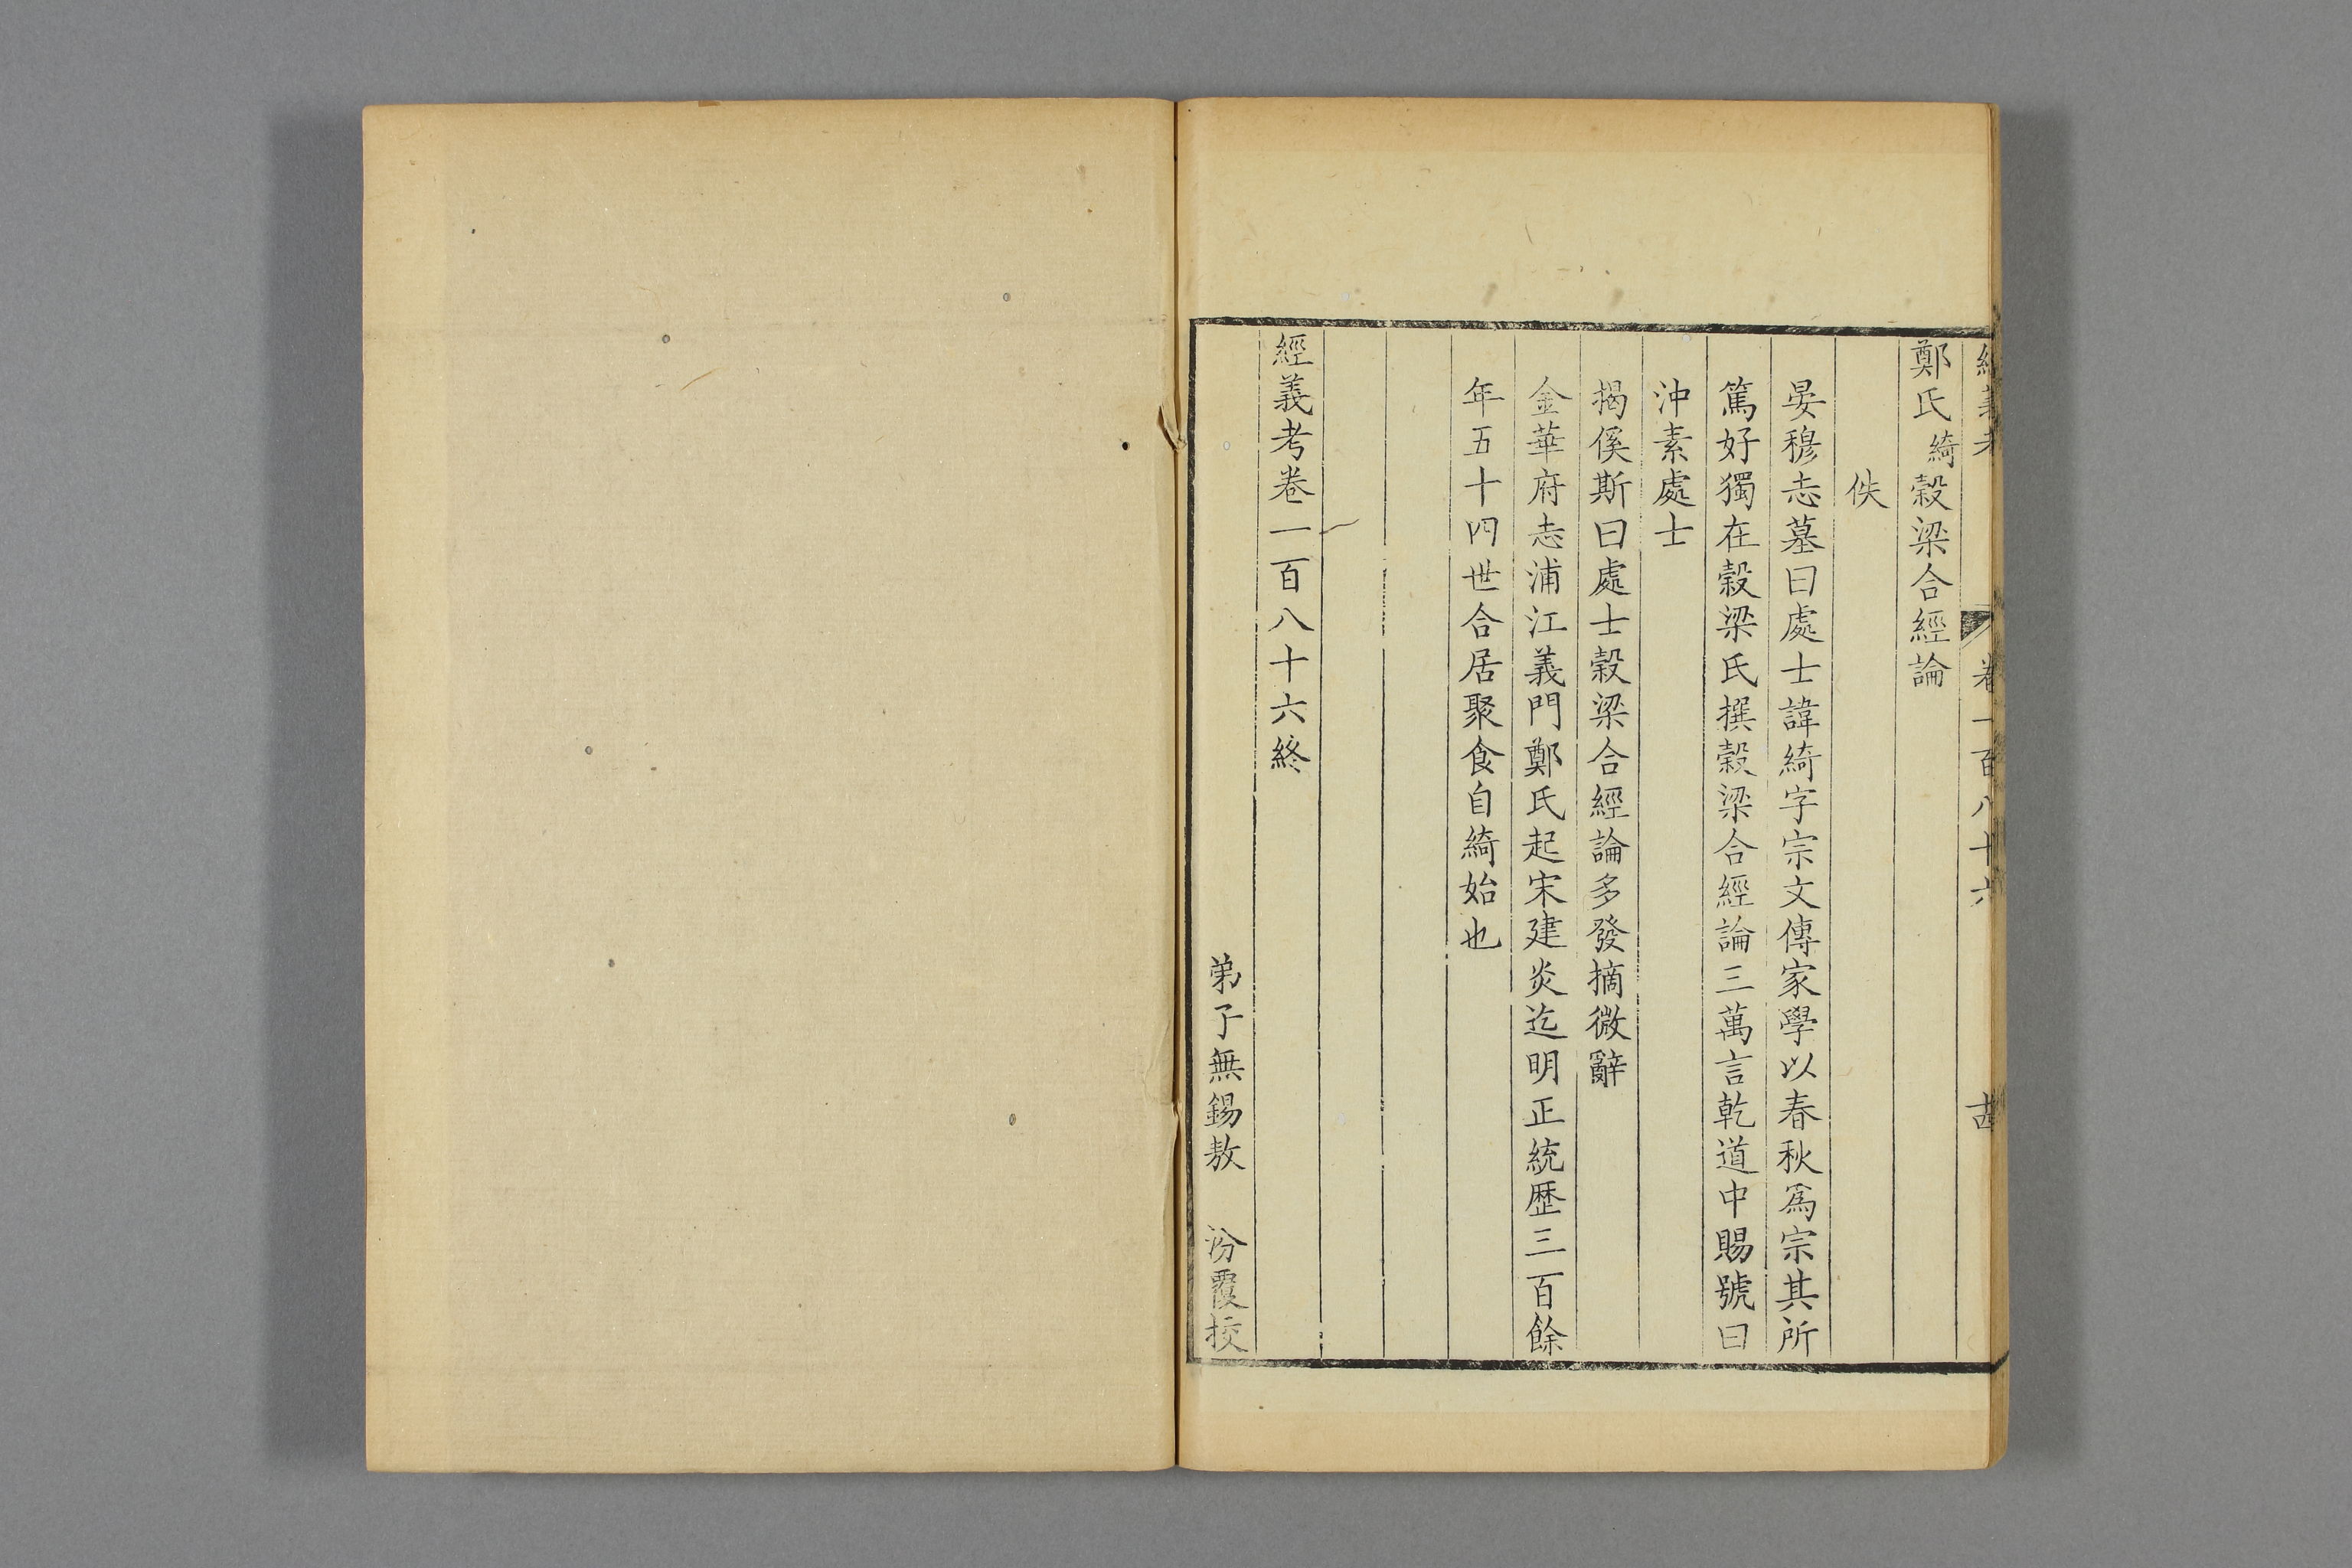 經義考 卷一百八十六 十四
鄭氏綺穀梁合經論
佚
晏穆志墓曰處士諱綺字宗文傳家學以春秋爲宗其所
篤好獨在穀梁氏撰穀梁合經論三萬言乾道中賜號曰
沖素處士
揭傒斯曰處士穀梁合經論多發摘微辭
金華府志浦江義門鄭氏起宋建炎迄明正統歷三百餘
年五十四世合居聚食自綺始也
經義考卷一百八十六終
弟子無錫敖 汾覆挍